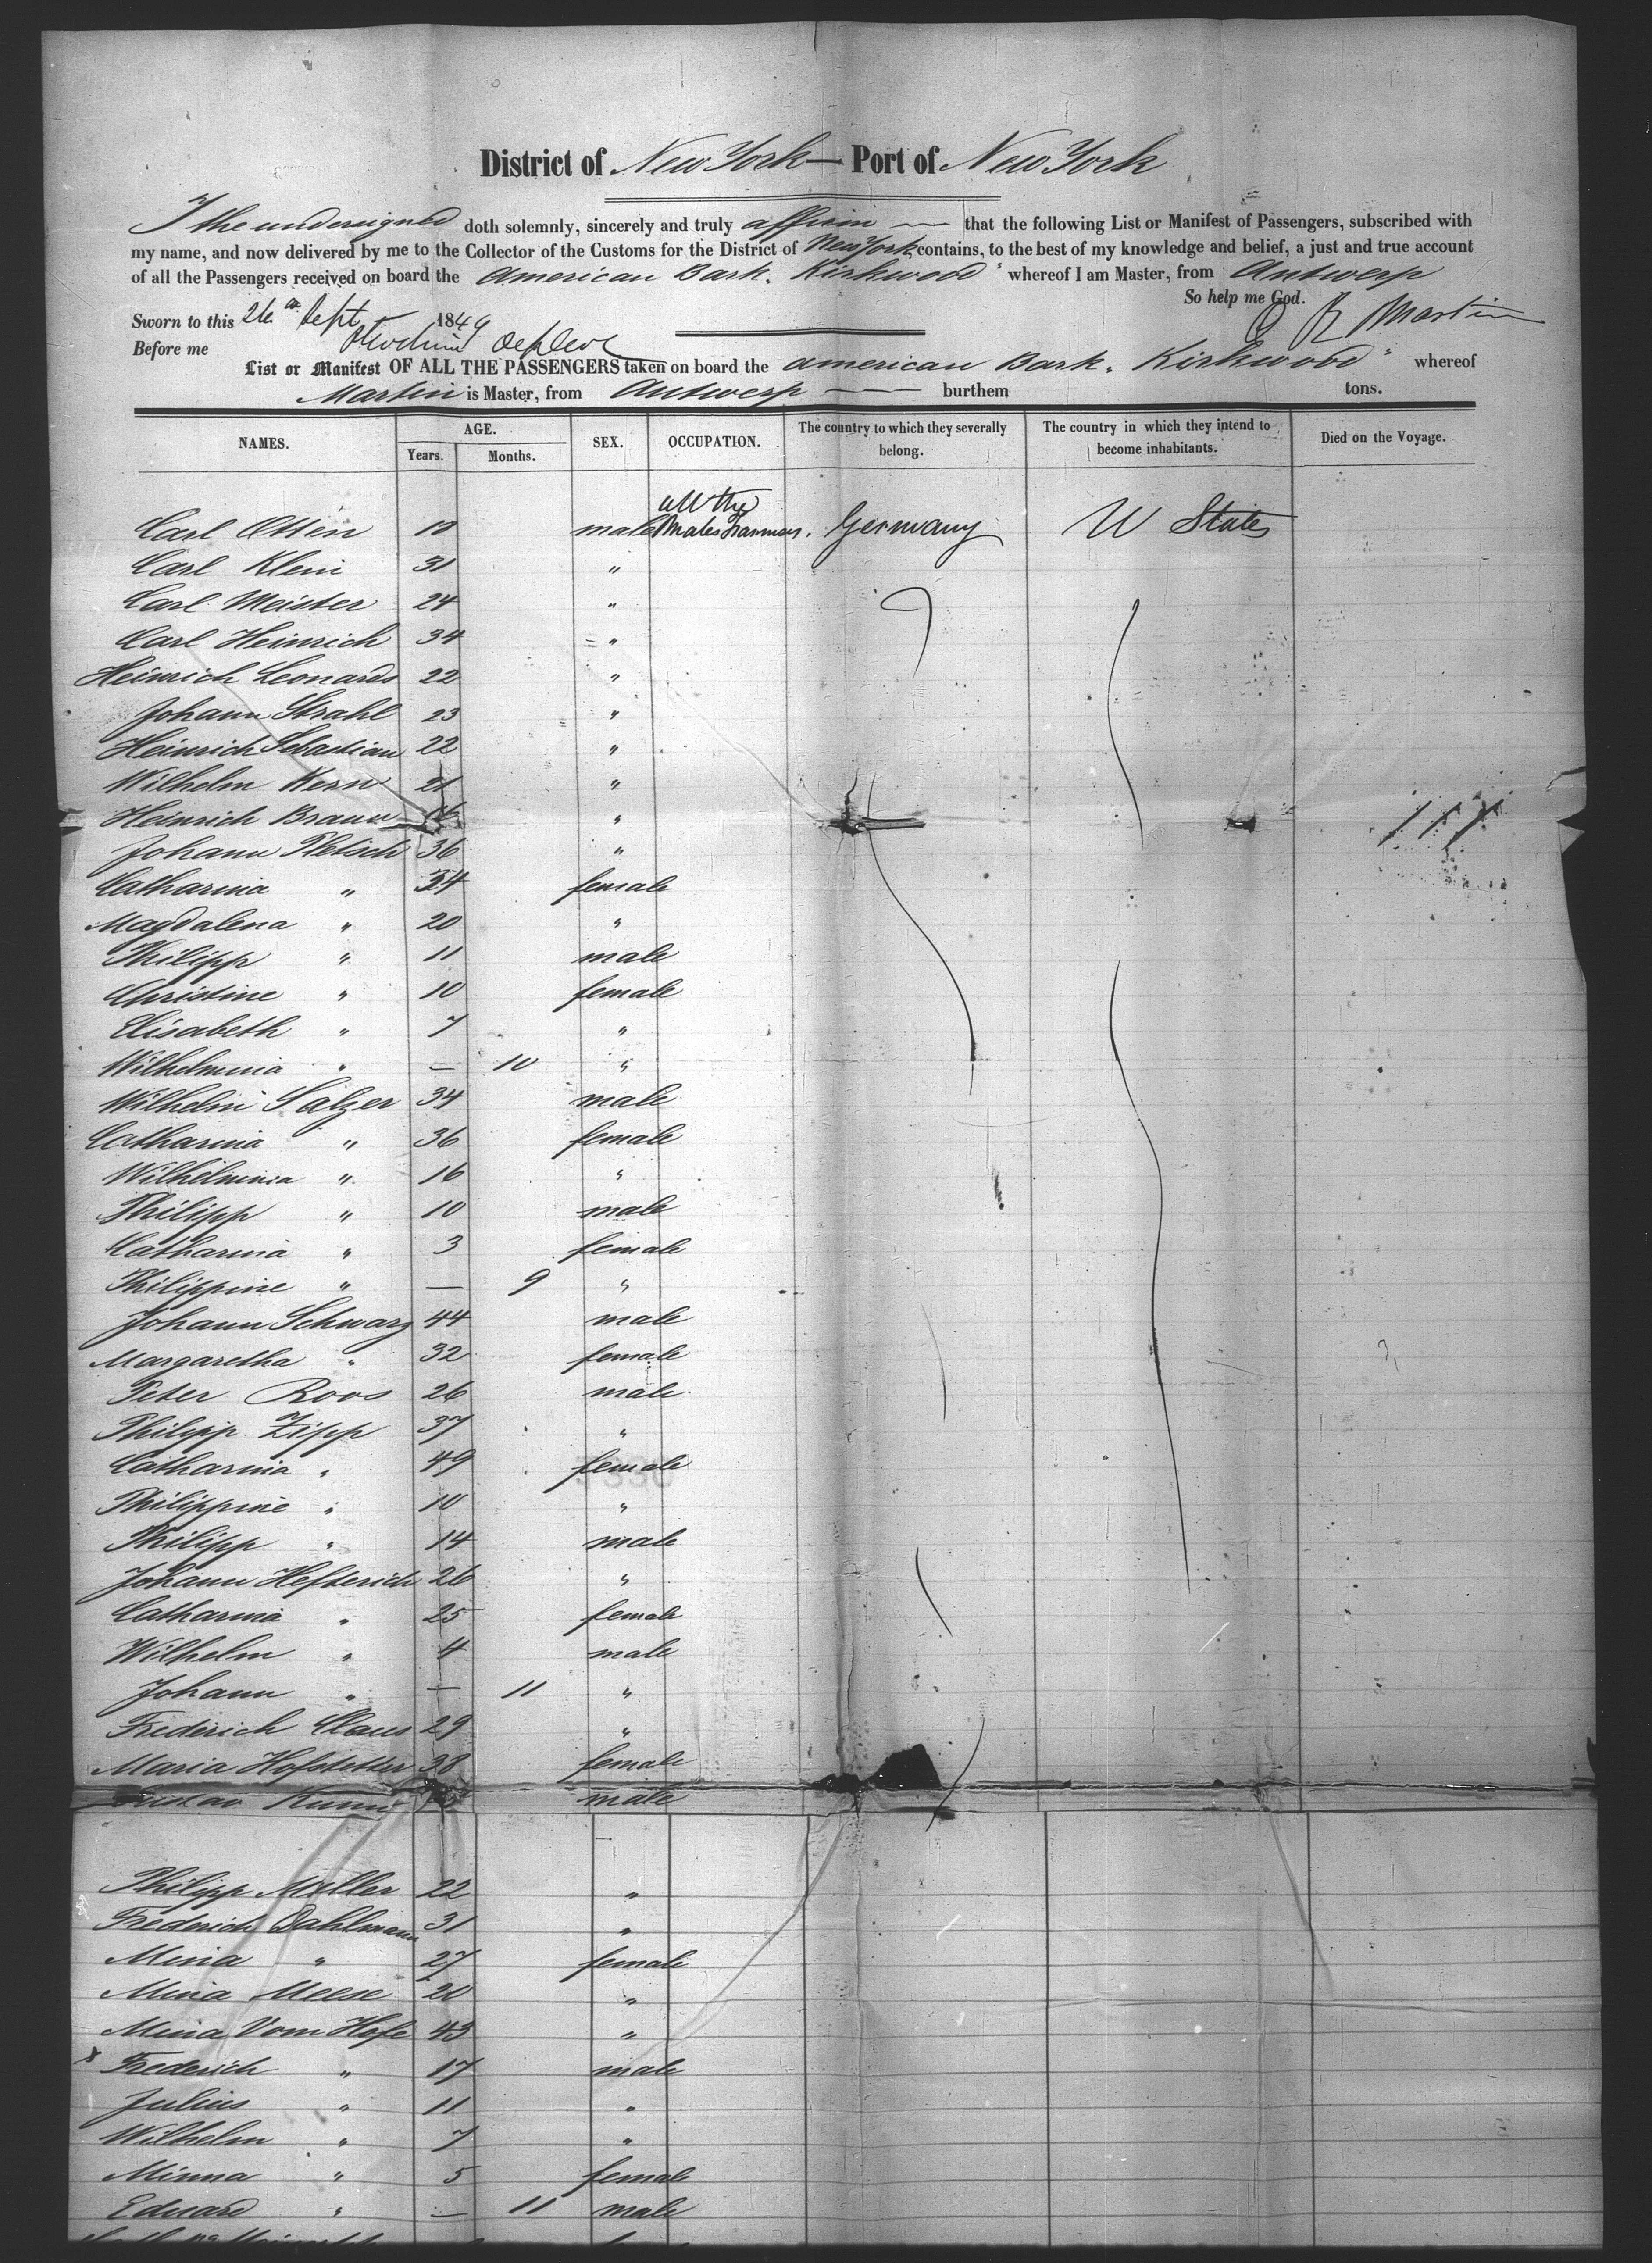 District of New York — Port of New York
I the undersigned doth solemnly, sincerely and truly affirm — that the following List or Manifest of Passengers, subscribed with
my name, and now delivered by me to the Collector of the Customs for the District of New York contains, to the best of my knowledge and belief, a just and true account
of all the Passengers received on board the American Bark. Kirkwood" whereof I am Master, from Antwerp
So help me God.
Sworn to this 26th Sept 1849
Martin
Before me
List or Manifest OF ALL THE PASSENGERS taken on board the American Bark. Kirkwood" whereof
Martin is Master, from Antwerp — burthem tons.
NAMES. AGE. SEX. OCCUPATION. The country to which they severally belong. The country in which they intend to become inhabitants. Died on the Voyage.
Years. Months.
all the
Carl Otten male Males Farmers. Germany U States
Carl Klein 31 "
Carl Meister 24 "
Carl Heinrich 34 "
Heinrich Leonards 22 "
Johann Strahl 23 "
Heinrich Sebastian 22 "
Wilhelm Kern 21 "
Heinrich Braun 16 "
Johann Pletsch 36 "
Catharina " 34 female
Magdalena " 20 "
Philipp " 11 male
Christine " 10 female
Elisabeth " 7 "
Wilhelmina " — 10 "
Wilhelm Salzer 34 male
Catharina " 36 female
Wilhelmina " 16 "
Philipp " 10 male
Catharina " 3 female
Philippine " — 9 "
Johann Schwarz 44 male
Margaretha " 32 female
Peter Roos 26 male
Philipp Zipp 37 "
Catharina " 49 female
Philippine " 10 "
Philipp " 14 male
Johann Hefterich 26 "
Catharina " 25 female
Wilhelm " 4 male
Johann " — 11 "
Frederich Claus 29 "
Maria Hofstetter 38 female
Gustav male
Philipp Müller 22 "
Frederich Dahlmann 31 "
Mina " 27 female
Mina Meese 20 "
Mina Vom Hofe 43 "
x Frederich " 17 male
Julius " 11 "
Wilhelm " 7 "
Minna " 5 female
Eduard " — 11 male